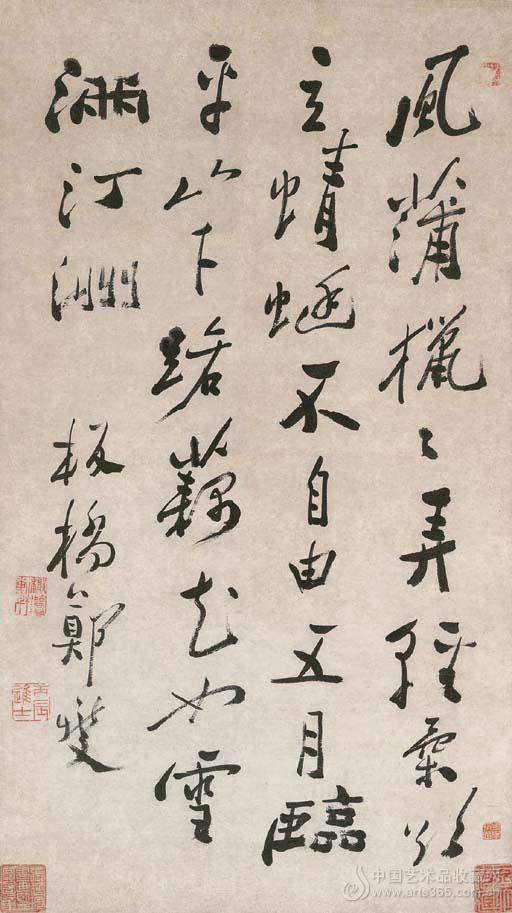 風蒲獵〻弄輕柔欲
立蜻蜓不自由五月臨
平山下路藕花如雪
滿汀洲
板橋鄭燮
丙辰進士
中国艺术品收藏网
www.arts365.com.cn